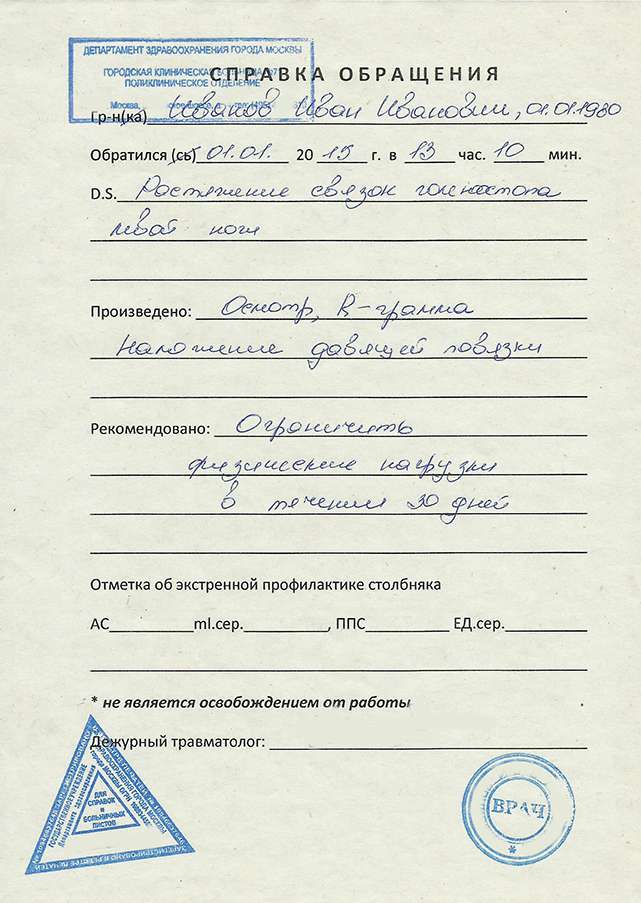 ДЕПАРТАМЕНТ ЗДРАВООХРАНЕНИЯ ГОРОДА МОСКВЫ
ГОРОДСКАЯ КЛИНИЧЕСКАЯ БОЛЬНИЦА №7
ПОЛИКЛИНИЧЕСКОЕ ОТДЕЛЕНИЕ
Москва,
СПРАВКА ОБРАЩЕНИЯ
Гр-н(ка) Иванов Иван Иванович, 01.01.1980
Обратился (сь) 01.01. 2015 г. в 13 час. 10 мин.
D.S. Растяжение связок голеностопа
левой ноги
Произведено: Осмотр, R-грамма
Наложение давящей повязки
Рекомендовано: Ограничить
физические нагрузки
в течении 30 дней
Отметка об экстренной профилактике столбняка
АС__________ml.сер.__________, ППС__________ ЕД.сер.__________
* не является освобождением от работы
Дежурный травматолог:
ДЛЯ
СПРАВОК
И
БОЛЬНИЧНЫХ
ЛИСТОВ
ВРАЧ